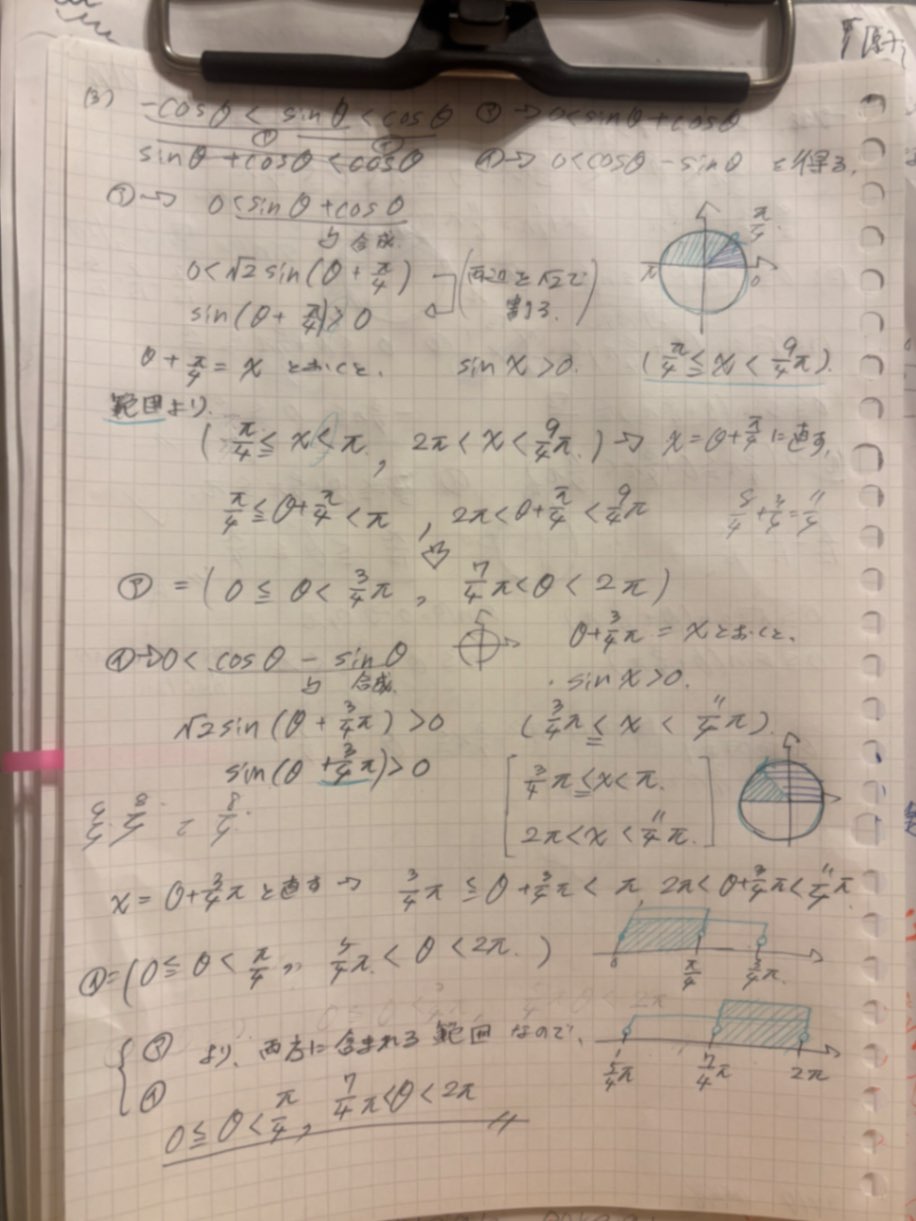 (3) -cosθ < sinθ < cosθ ㋐→ 0<sinθ+cosθ
sinθ+cosθ<cosθ ㋑→ 0<cosθ-sinθ を得る。
㋐→ 0<sinθ+cosθ
↳ 合成
0<√2sin(θ+π/4) (両辺を√2で割る。)
sin(θ+π/4)>0
π/4
π 0
θ+π/4=x とおくと、 sin x>0. (π/4≦x<9/4π).
範囲より。
(π/4≦x<π, 2π<x<9/4π.)→ x=θ+π/4に直す。
π/4≦θ+π/4<π, 2π<θ+π/4<9/4π
8/4+3/4=11/4
㋐=(0≦θ<3/4π, 7/4π<θ<2π)
㋑→0<cosθ-sinθ
↳ 合成
θ+3/4π=xとおくと、
sin x>0.
√2sin(θ+3/4π)>0 (3/4π≦x<11/4π).
sin(θ+3/4π)>0
[3/4π≦x<π.
2π<x<11/4π.]
x=θ+3/4πと直す→ 3/4π≦θ+3/4π<π, 2π<θ+3/4π<11/4π
㋑=(0≦θ<π/4, 5/4π<θ<2π.)
0 π/4 3/4π.
{㋐ ㋑ より、両方に含まれる範囲なので、
5/4π 7/4π 2π
0≦θ<π/4, 7/4π<θ<2π